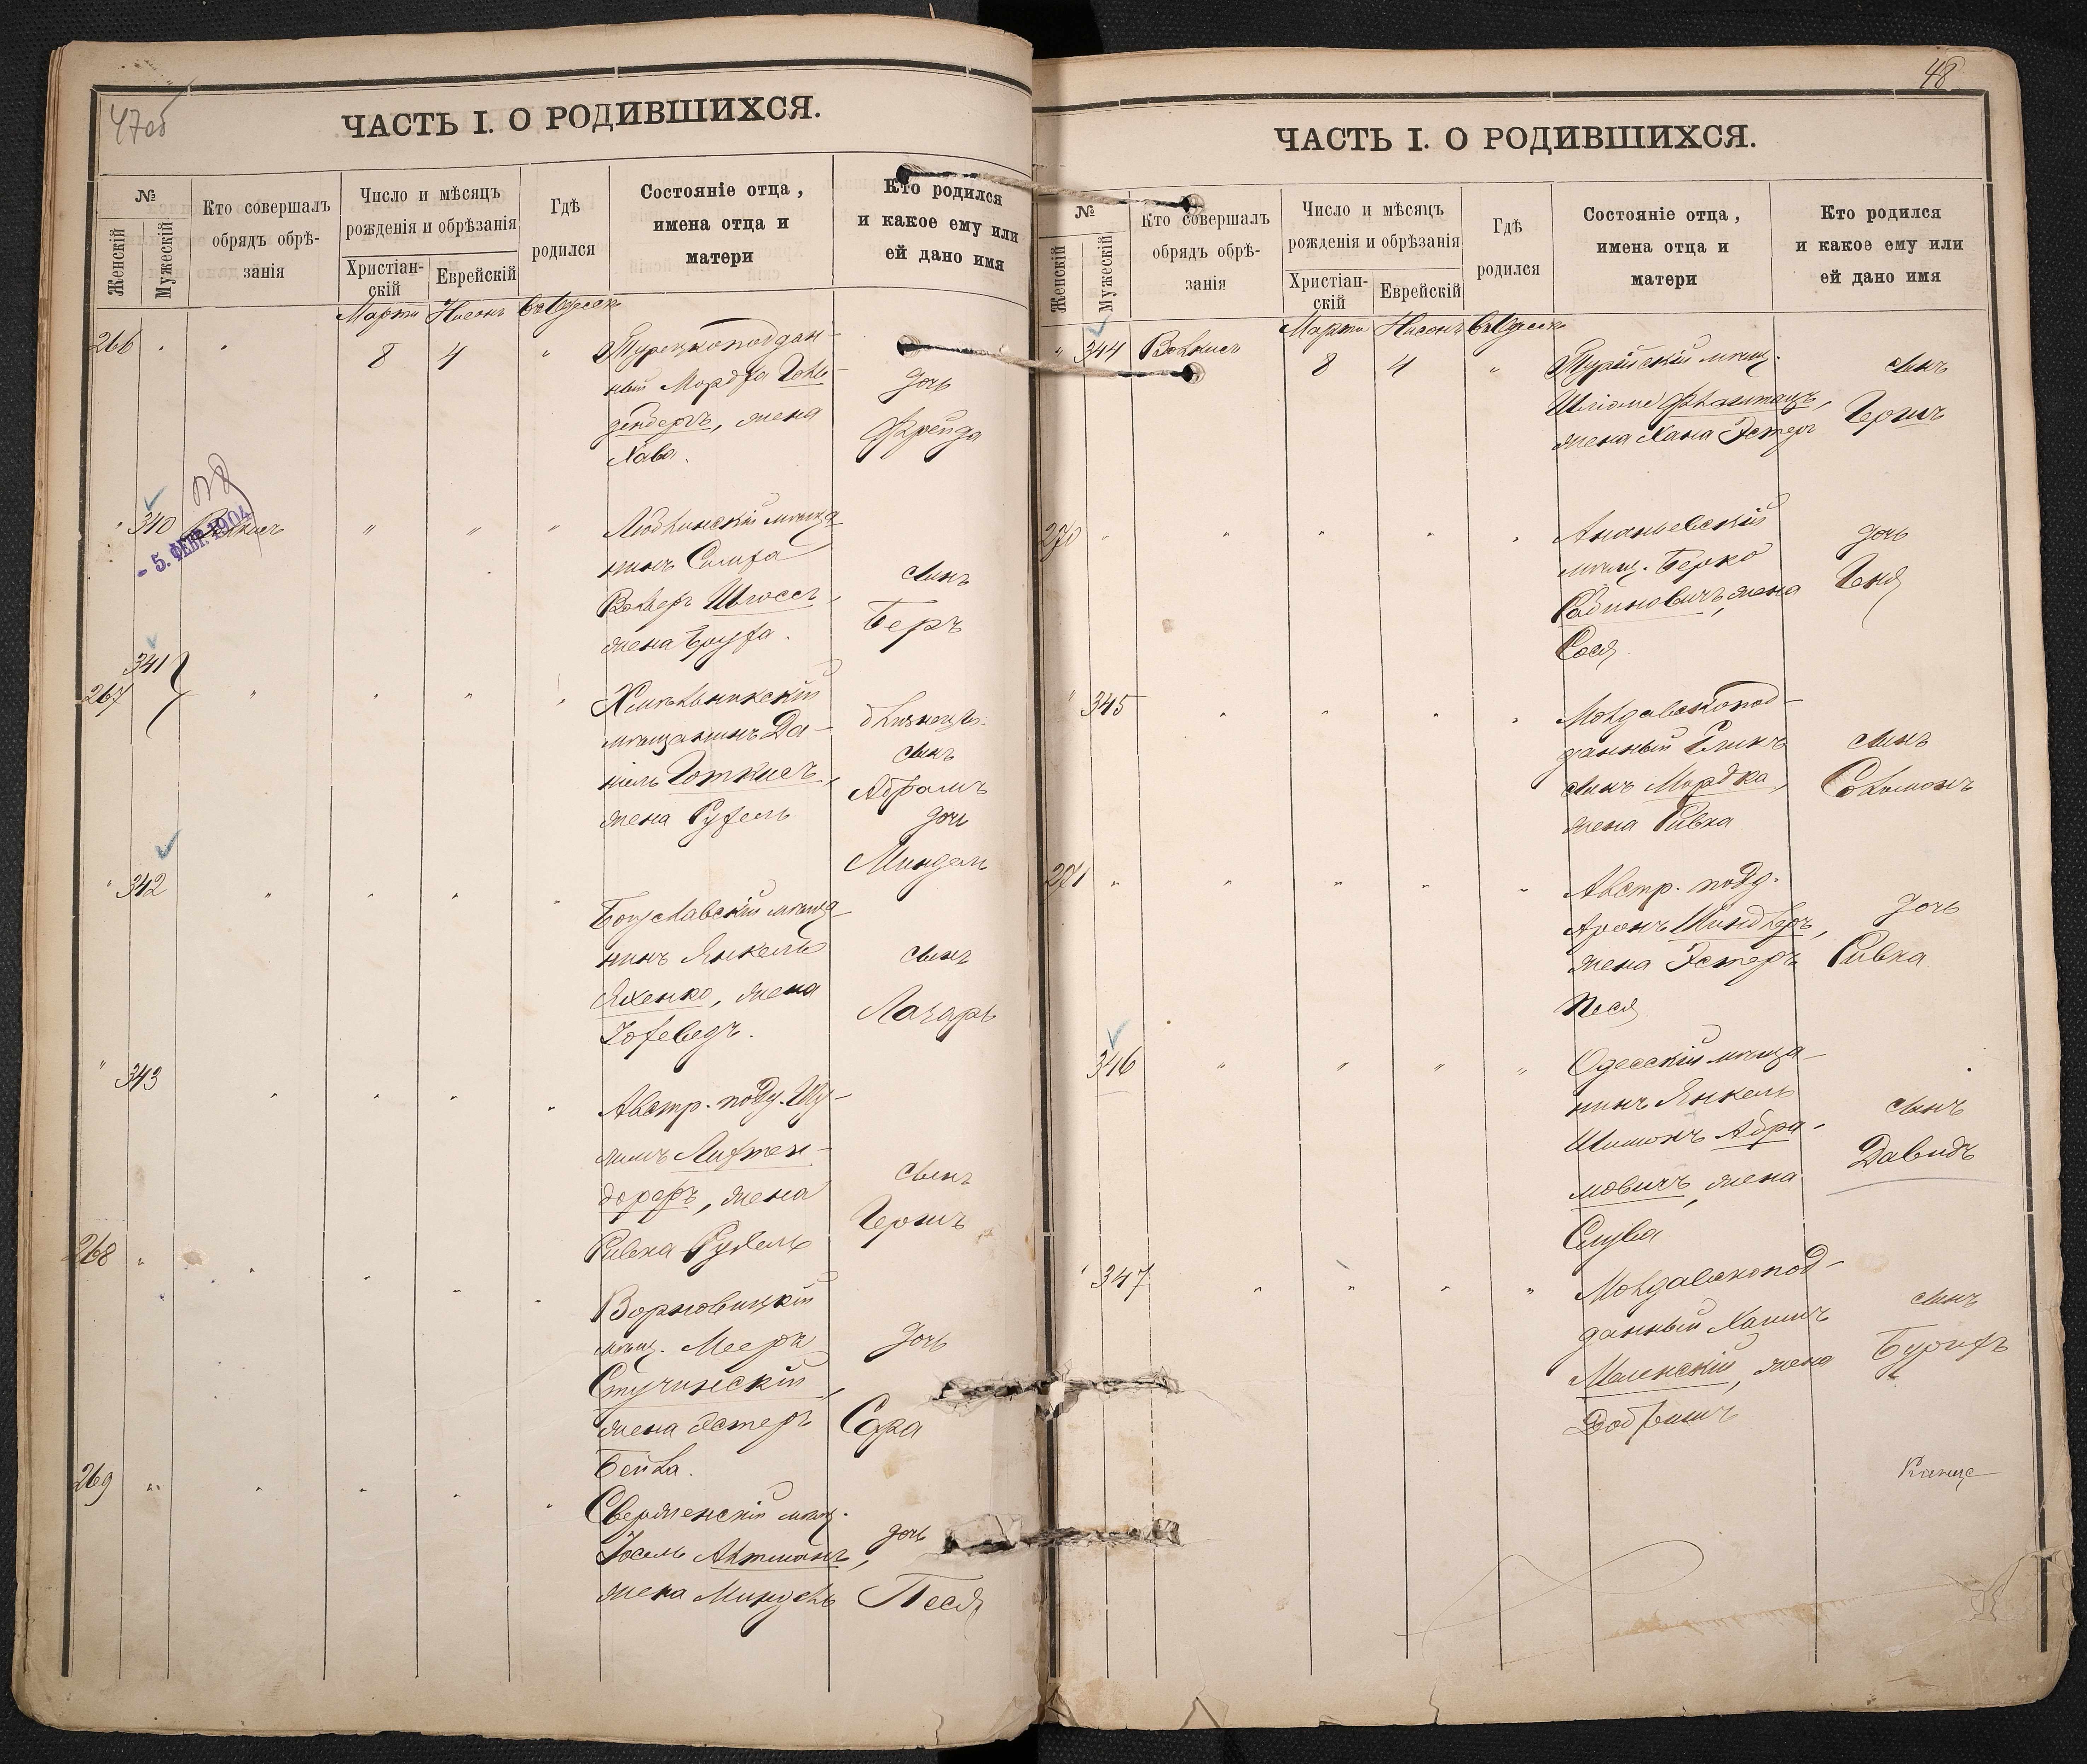 47об
ЧАСТЬ I. О РОДИВШИХСЯ.
№
Женскій
Мужескій
Кто совершалъ
обрядъ обрѣ-
занія
Число и мѣсяцъ
рожденія и обрѣзанія
Христіан-
скій
Еврейскій
Гдѣ
родился
Состояніе отца,
имена отца и
матери
Кто родился
и какое ему или
ей дано имя
Мартъ Нисонъ Въ Одессѣ
266 " " 8 4 " Турецкоподдан-
ный Мордха
жена
Хава.
дочь
Фрейда
" 340
- 5. ФЕВР. 1904
" " "
мѣща
нинъ Симха
Вольфъ Шлоссъ,
жена Бруха.
сынъ
Беръ
341
267 " " " "
Хмѣльникскій
мѣщанинъ Да-
ніель Готкисъ,
жена Рухель
близнецы:
сынъ
Абрамъ
дочь
Миндель
" 342 " " " "
Богуславскій мѣща
нинъ Янкель
Яхенко, жена
Іохеведъ.
сынъ
Лазарь
" 343 " " " "
Австр. подд.
жена
Ривка Рухель
сынъ
Гершъ
268 " " " " "
мѣщ. Мееръ
Стучинскій,
жена Эстеръ
Бейла.
дочь
Сура
269 " " " " "
мѣщ.
Іосель Альтманъ,
жена Миндель
дочь
Песя
48
ЧАСТЬ I. О РОДИВШИХСЯ.
№
Женскій
Мужескій
Кто совершалъ
обрядъ обрѣ-
занія
Число и мѣсяцъ
рожденія и обрѣзанія
Христіан-
скій
Еврейскій
Гдѣ
родился
Состояніе отца,
имена отца и
матери
Кто родился
и какое ему или
ей дано имя
Мартъ Нисонъ Въ Одессѣ
" 344 Волкисъ 8 4 "
Турійскій мѣщ.
Шліоме
жена Хана Эстеръ
сынъ
Гершъ
270 " " " " "
Ананьевскій
мѣщ. Берко
Рабиновичъ, жена
Сося.
дочь
Геня
" 345 " " " "
Молдавскопод-
данный
сынъ Мордка,
жена Ривка
сынъ
Соломонъ
271 " " " " "
Австр. подд.
Аронъ Шиндлеръ,
жена Эстеръ
Песя.
дочь
Ривка
346 " " " "
Одесскій мѣща-
нинъ Янкель
Шимонъ Абра-
мовичъ, жена
сынъ
Давидъ
" 347 " " " "
Молдавскопод-
данный Хаимъ
жена
Добрышъ
сынъ
Бурихъ